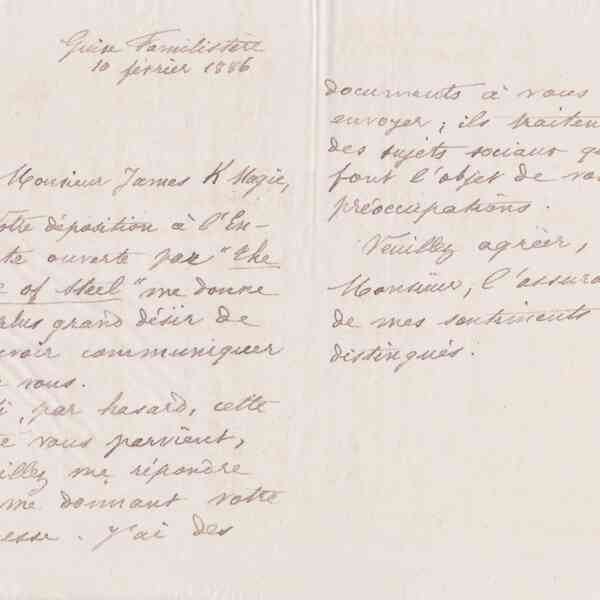 Guise Familistère
10 février 1886
Monsieur James K Magie,
otre déposition à l'En-
te ouverte par "the
e of Steel" me donne
plus grand désir de
uvoir communiquer
vous.
i, par hasard, cette
e vous parvient,
illez me répondre
me donnant votre
esse. J'ai des
documents à vous
envoyer ; ils traiten
des sujets sociaux qu
font l'objet de vos
préoccupations.
Veuillez agréer,
Monsieur, l'assura
de mes sentiments
distingués.